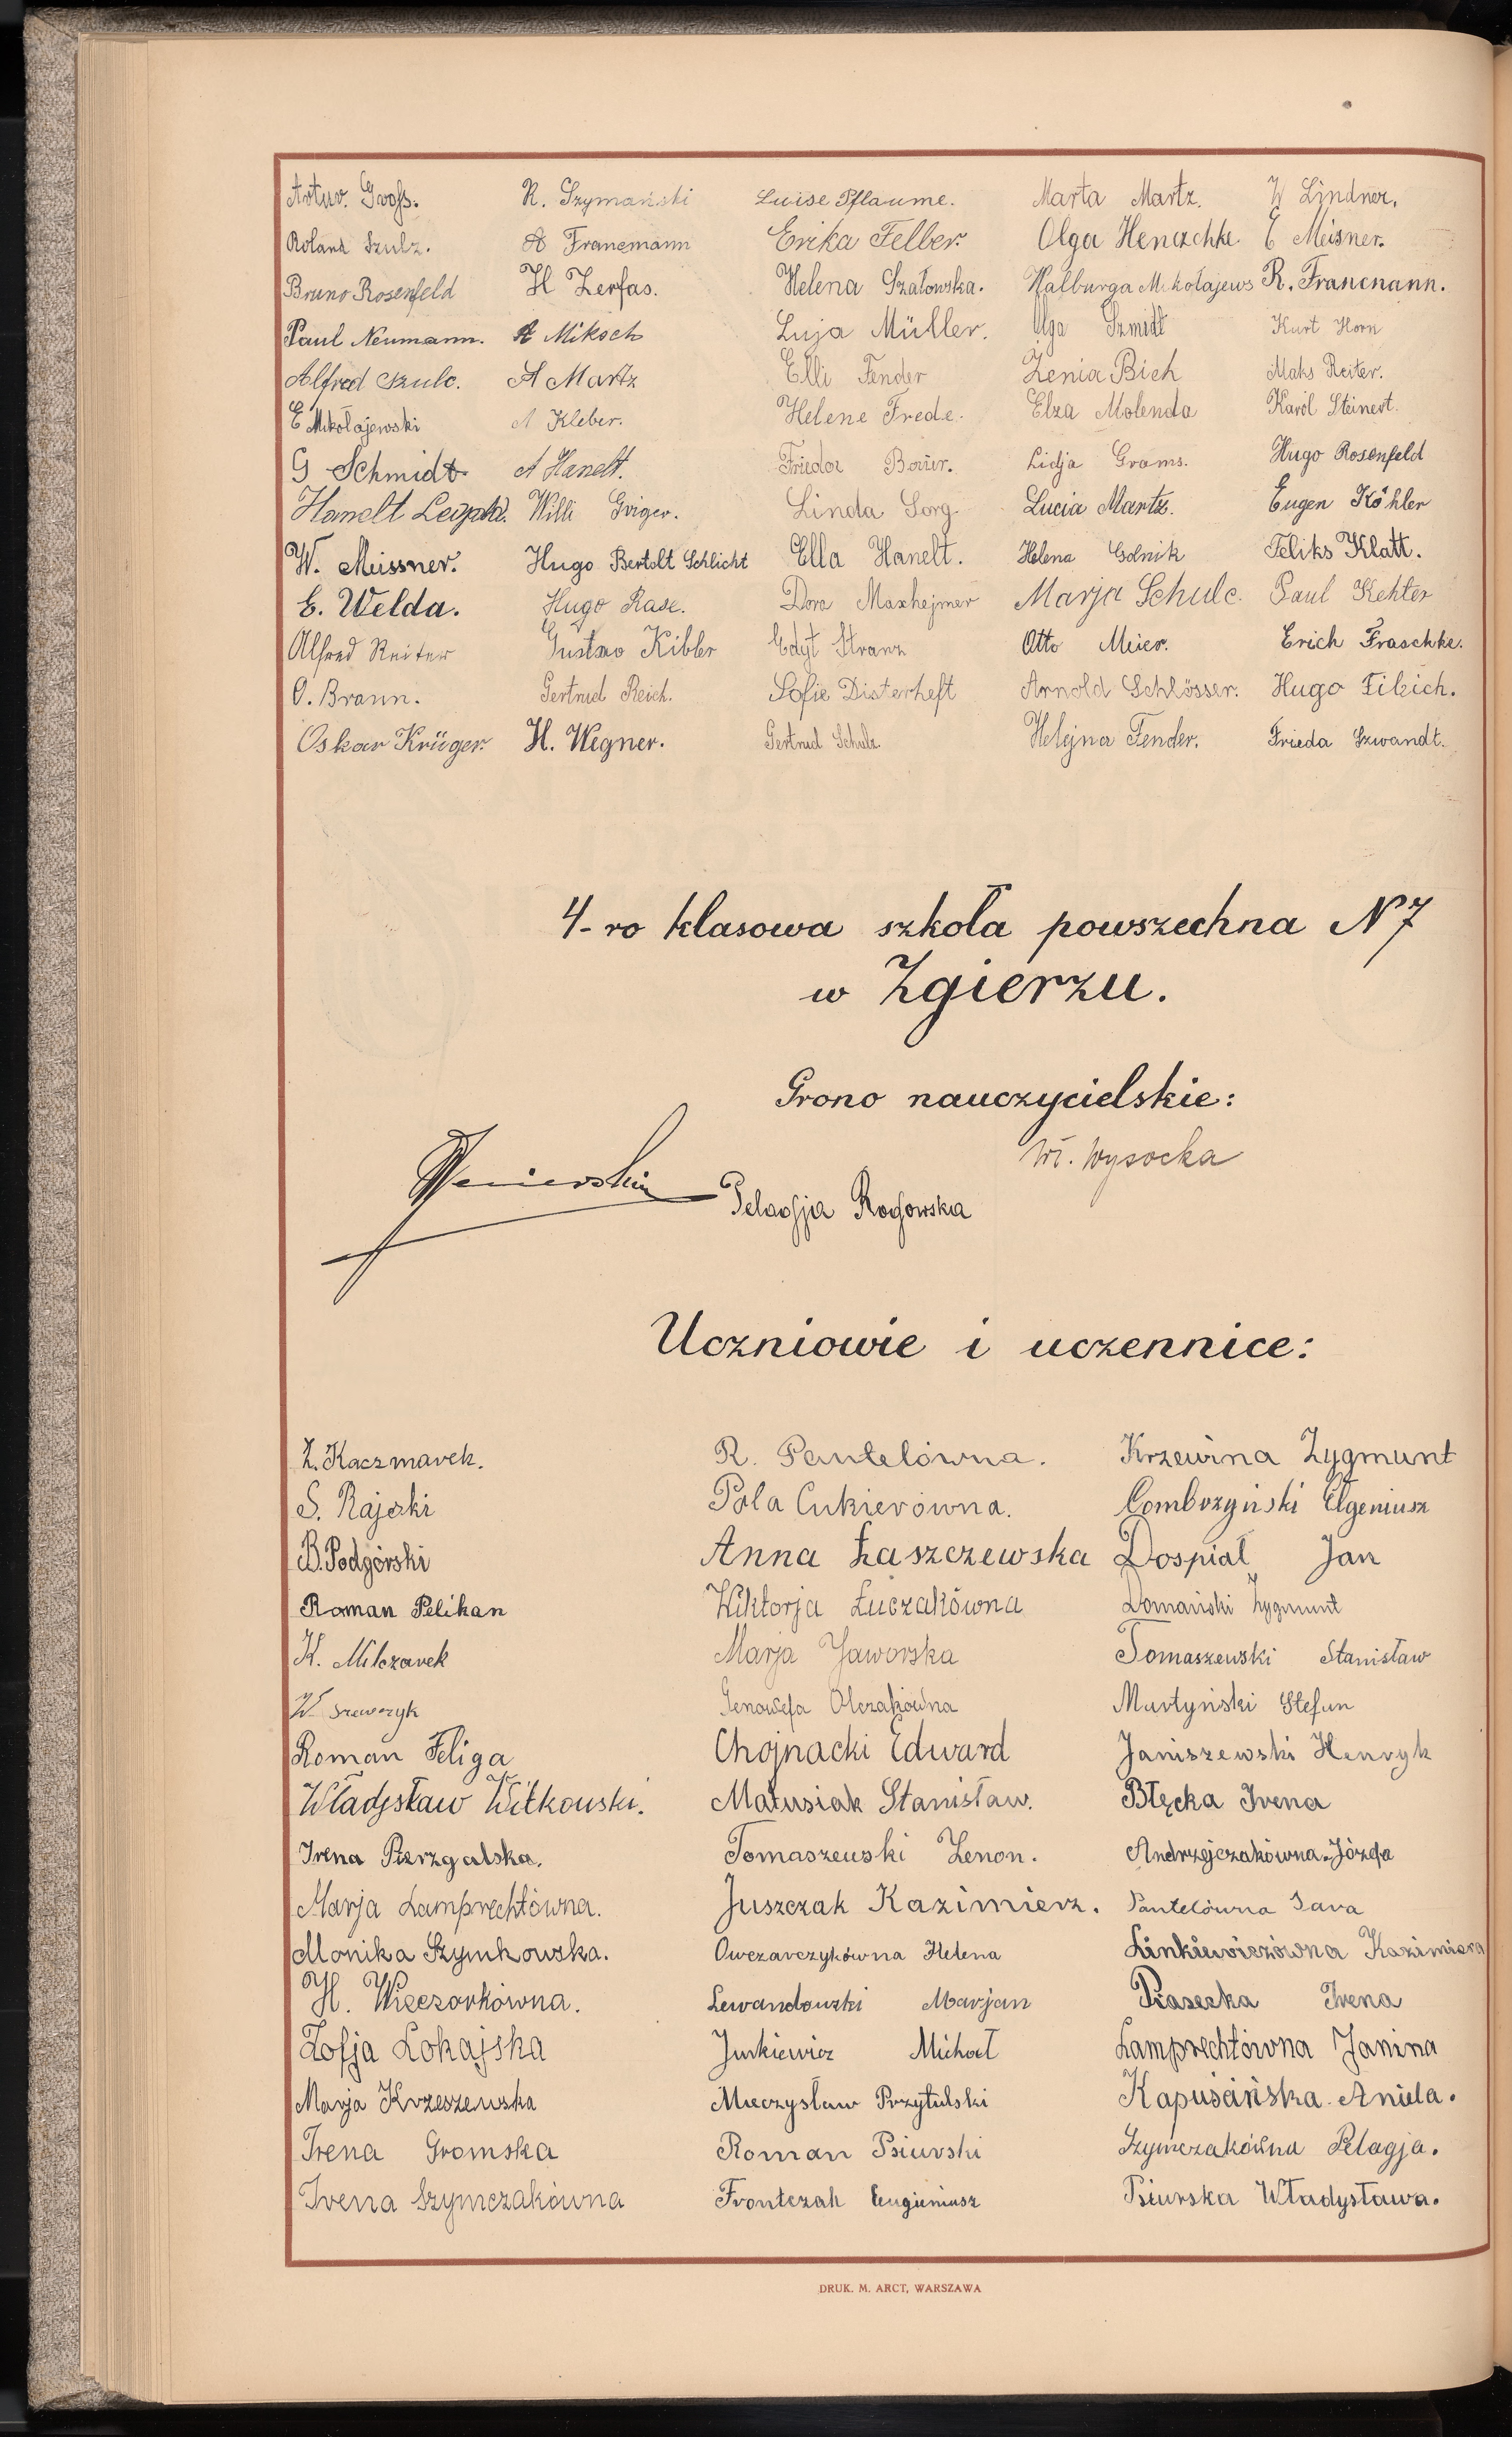 Artur. Groß. R. Szymański Luise Pflaume. Marta Martz. W Lindner.
Roland Szulz. A Francmann Erika Felber. Olga Henczchke. E Meisner.
Bruno Rosenfeld H Zerfas. Helena Szatowska. Walburga Mikołajews R. Francnann.
Paul Neumann. A Miksch Luja Müller. Olga Szmidt Kurt Horn
Alfred Szulc. A Martz Elli Fender Zenia Bich Maks Reiter.
E Mikołajewski A Kleber. Helene Frede. Elza Molenda Karol Steinert.
G Schmidt A Hanelt. Friedor Lidja Grams. Hugo Rosenfeld
Hanelt Leopld. Willi Griger. Linda Sorg Lucia Martz. Eugen Köhler
W. Meissner. Hugo Bertolt Schlicht Ella Hanelt. Helena Golnik Feliks Klatt.
E. Welda. Hugo Rase. Dora Maxhejmer Marja Schulc. Paul Kehter
Alfred Reiter Gustaw Kibler Edyt Stranz Otto Meier. Erich Fraschke.
O. Braun. Gertrud Reich. Sofie Disterheft Arnold Schlösser. Hugo Filzich.
Oskar Krüger. H. Wegner. Gertrud Schulz Helejna Fender. Frieda Szwandt.
4-ro klasowa szkoła powszechna N 7
w Zgierzu.
Grono nauczycielskie:
Wł. Wysocka
Pelagja Rogowska
Uczniowie i uczennice:
Z. Kaczmarek. R. Pantelówna. Krzewina Zygmunt
S. Rajski Pola Cukierówna. Combrzyński Eugeniusz
B. Podgórski Anna Łaszczewska Dospiał Jan
Roman Pelikan Wiktorja Łuczakówna Domański Zygmunt
K. Milczarek Marja Jaworska Tomaszewski Stanisław
W. Szewczyk Genowefa Olczakówna Martyński Stefan
Roman Feliga Chojnacki Edward Janiszewski Henryk
Władysław Witkowski. Matusiak Stanisław. Błęcka Irena
Irena Pierzgalska. Tomaszewski Zenon. Andrzejczakówna Józefa
Marja Lamprechtówna. Juszczak Kazimierz. Pantelówna Sara
Monika Szymkowska. Owczarczykówna Helena Linkiewiczówna Kazimiera
H. Wieczorkówna. Lewandowski Marjan Piasecka Irena
Zofja Lokajska Jurkiewicz Michał Lamprechtówna Janina
Marja Krzeszewska Mieczysław Przytulski Kapuścińska Aniela.
Irena Gromska Roman Psiurski Szymczakówna Pelagja.
Irena Szymczakówna Frontczak Eugieniusz Psiurska Władysława.
DRUK. M. ARCT, WARSZAWA